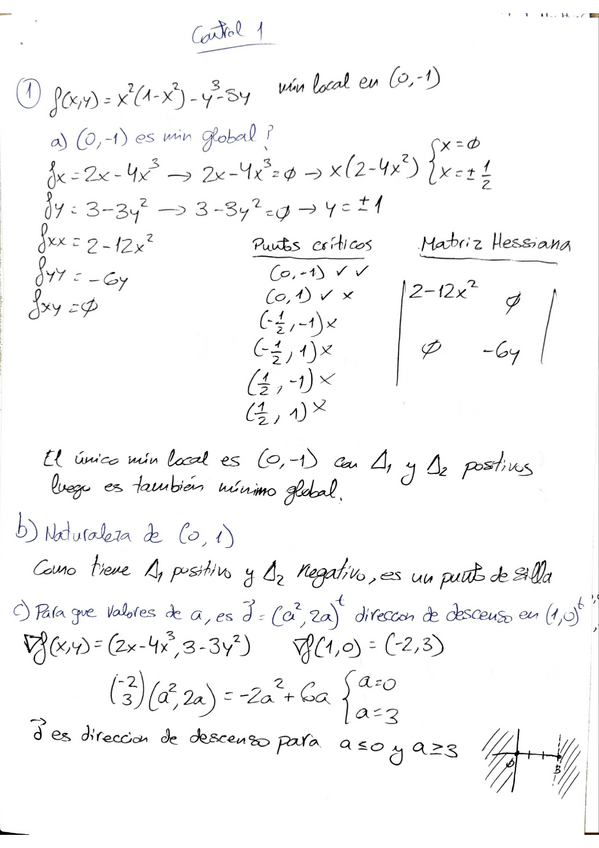 Control 1
① f(x,y) = x²(1-x²) - y³-5y min local en (0,-1)
a) (0,-1) es min global?
fx = 2x - 4x³ → 2x - 4x³ = ∅ → x(2-4x²) { x = ∅
x = ± 1/2
fy = 3 - 3y² → 3 - 3y² = ∅ → y = ± 1
fxx = 2 - 12x²
fyy = -6y
fxy = ∅
Puntos críticos
(0,-1) ✓ ✓
(0,1) ✓ x
(-1/2, -1) x
(-1/2, 1) x
(1/2, -1) x
(1/2, 1) x
Matriz Hessiana
| 2-12x² ∅ |
| ∅ -6y |
El único min local es (0,-1) con Δ₁ y Δ₂ positivos
luego es también mínimo global.
b) Naturaleza de (0,1)
Como tiene Δ₁ positivo y Δ₂ negativo, es un punto de silla
c) Para que valores de a, es d⃗ = (a², 2a)ᵗ direccion de descenso en (1,0)ᵗ
∇f(x,y) = (2x-4x³, 3-3y²) ∇f(1,0) = (-2,3)
(-2 3)(a², 2a) = -2a² + 6a { a=0
a=3
d⃗ es direccion de descenso para a ≤ 0 y a ≥ 3
∅ 3